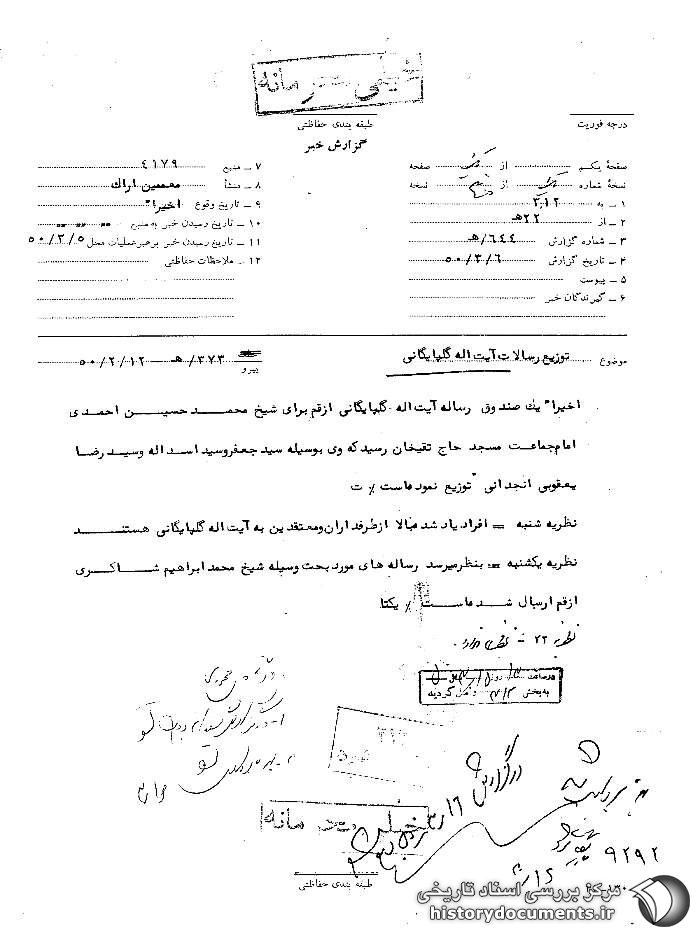 خیلی محرمانه
درجه فوریت
طبقه بندی حفاظتی
گزارش خبر
صفحهٔ یکم از یک صفحه
نسخهٔ شماره یک از نسخه
۱ ـ به ۳۱۲
۲ ـ از ۲۲ه
۳ ـ شماره گزارش ۶۴۴/ه
۴ ـ تاریخ گزارش ۵۰/۳/۶
۵ ـ پیوست
۶ ـ گیرندگان خبر
۷ ـ منبع ۴۱۷۹
۸ ـ منشأ معممین اراک
۹ ـ تاریخ وقوع اخیرا"
۱۰ ـ تاریخ رسیدن خبر به منبع
۱۱ ـ تاریخ رسیدن خبر برهبر عملیات محل ۵۰/۳/۵
۱۲ ـ ملاحظات حفاظتی
موضوع توزیع رسالات آیت اله گلپایگانی
پیرو ۳۷۳/ه ـ ۵۰/۲/۱۲
اخیرا" یک صندوق رساله آیت اله گلپایگانی از قم برای شیخ محمد حسین احمدی
امام جماعت مسجد حاج تقیخان رسیده که وی بوسیله سید جعفر و سید اسد اله و سید رضا
یعقوبی انجدانی توزیع نموده است ٪ ت
نظریه شنبه = افراد یاد شده بالا از طرفداران و معتقدین به آیت اله گلپایگانی هستند
نظریه یکشنبه = بنظر میرسد رساله های مورد بحث وسیله شیخ محمد ابراهیم شاکری
از قم ارسال شده است ٪ یکتا
نظریه ۲۲ه - نظری ندارد.
در ساعت روز
به بخش ۳۱۲ واصل گردید
۳۱۲
در گزارش
۹۲۹۲
خیلی محرمانه
طبقه بندی حفاظتی
مرکز بررسی اسناد تاریخی
historydocuments.ir